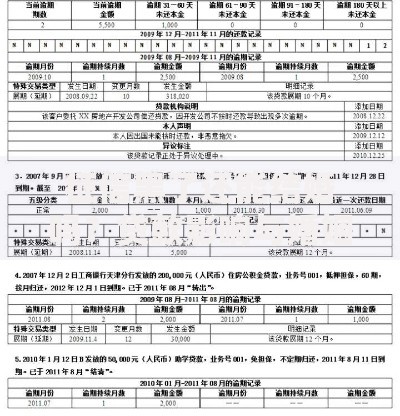 当前逾期期数 当前逾期金额 逾期31-60天未还本金 逾期61-90天未还本金 逾期91-180天未还本金 逾期180天以上未还本金
2 5,500 1,000 0 0 0
2009年12月-2011年11月的还款记录
N N N N N N N N N N N N N N N N N N N N N N 1 2
2009年08月-2009年11月的逾期记录
逾期月份 逾期持续月数 逾期金额 逾期月份 逾期持续月数 逾期金额
2009.10 1 2,500 2009.08 1 2,500
特殊交易类型 发生日期 变更月数 发生金额 明细记录
展期（延期） 2008.09.22 10 318,020 该贷款展期10个月。
贷款机构说明 添加日期
该客户委托XX房地产开发公司偿还贷款，因开发公司不按时还款导致出现多次逾期。 2008.12.22
本人声明 添加日期
本人因出国未能按时还款，非恶意拖欠。 2010.12.12
异议标注 添加日期
该贷款记录正处于异议处理中。 2010.12.25
3．2007年9月
011年12月28日
到期。截至
五级分类
最近一次还款日期
正常 2,000 2011.06.30 1,000 2011.06.09
特殊交易类型
展期（延期） 2008.11.14 12 5,000 该贷款展期12个月。
4.2007年12月2日工商银行天津分行发放的200,000元（人民币）住房公积金贷款，业务号001，抵押担保，60期，
按月归还，2012年12月1日到期。已于2011年08月“转出”。
2009年08月-2011年08月的逾期记录
逾期月份 逾期持续月数 逾期金额 逾期月份 逾期持续月数 逾期金额
2011.08 2 2,000 2011.07 1 1,000
特殊交易类型 发生日期 变更月数 发生金额 明细记录
展期（延期） 2009.11.4 12 30,000 该贷款展期12个月。
5.2010年1月12日B发放的50,000元（人民币）助学贷款，业务号001，免担保，不定期归还，2011年8月11日到
期。已于2011年8月“结清”。
2010年01月-2011年08月的逾期记录
逾期月份 逾期持续月数 逾期金额 逾期月份 逾期持续月数 逾期金额
2011.07 1 2,000 —— —— ——